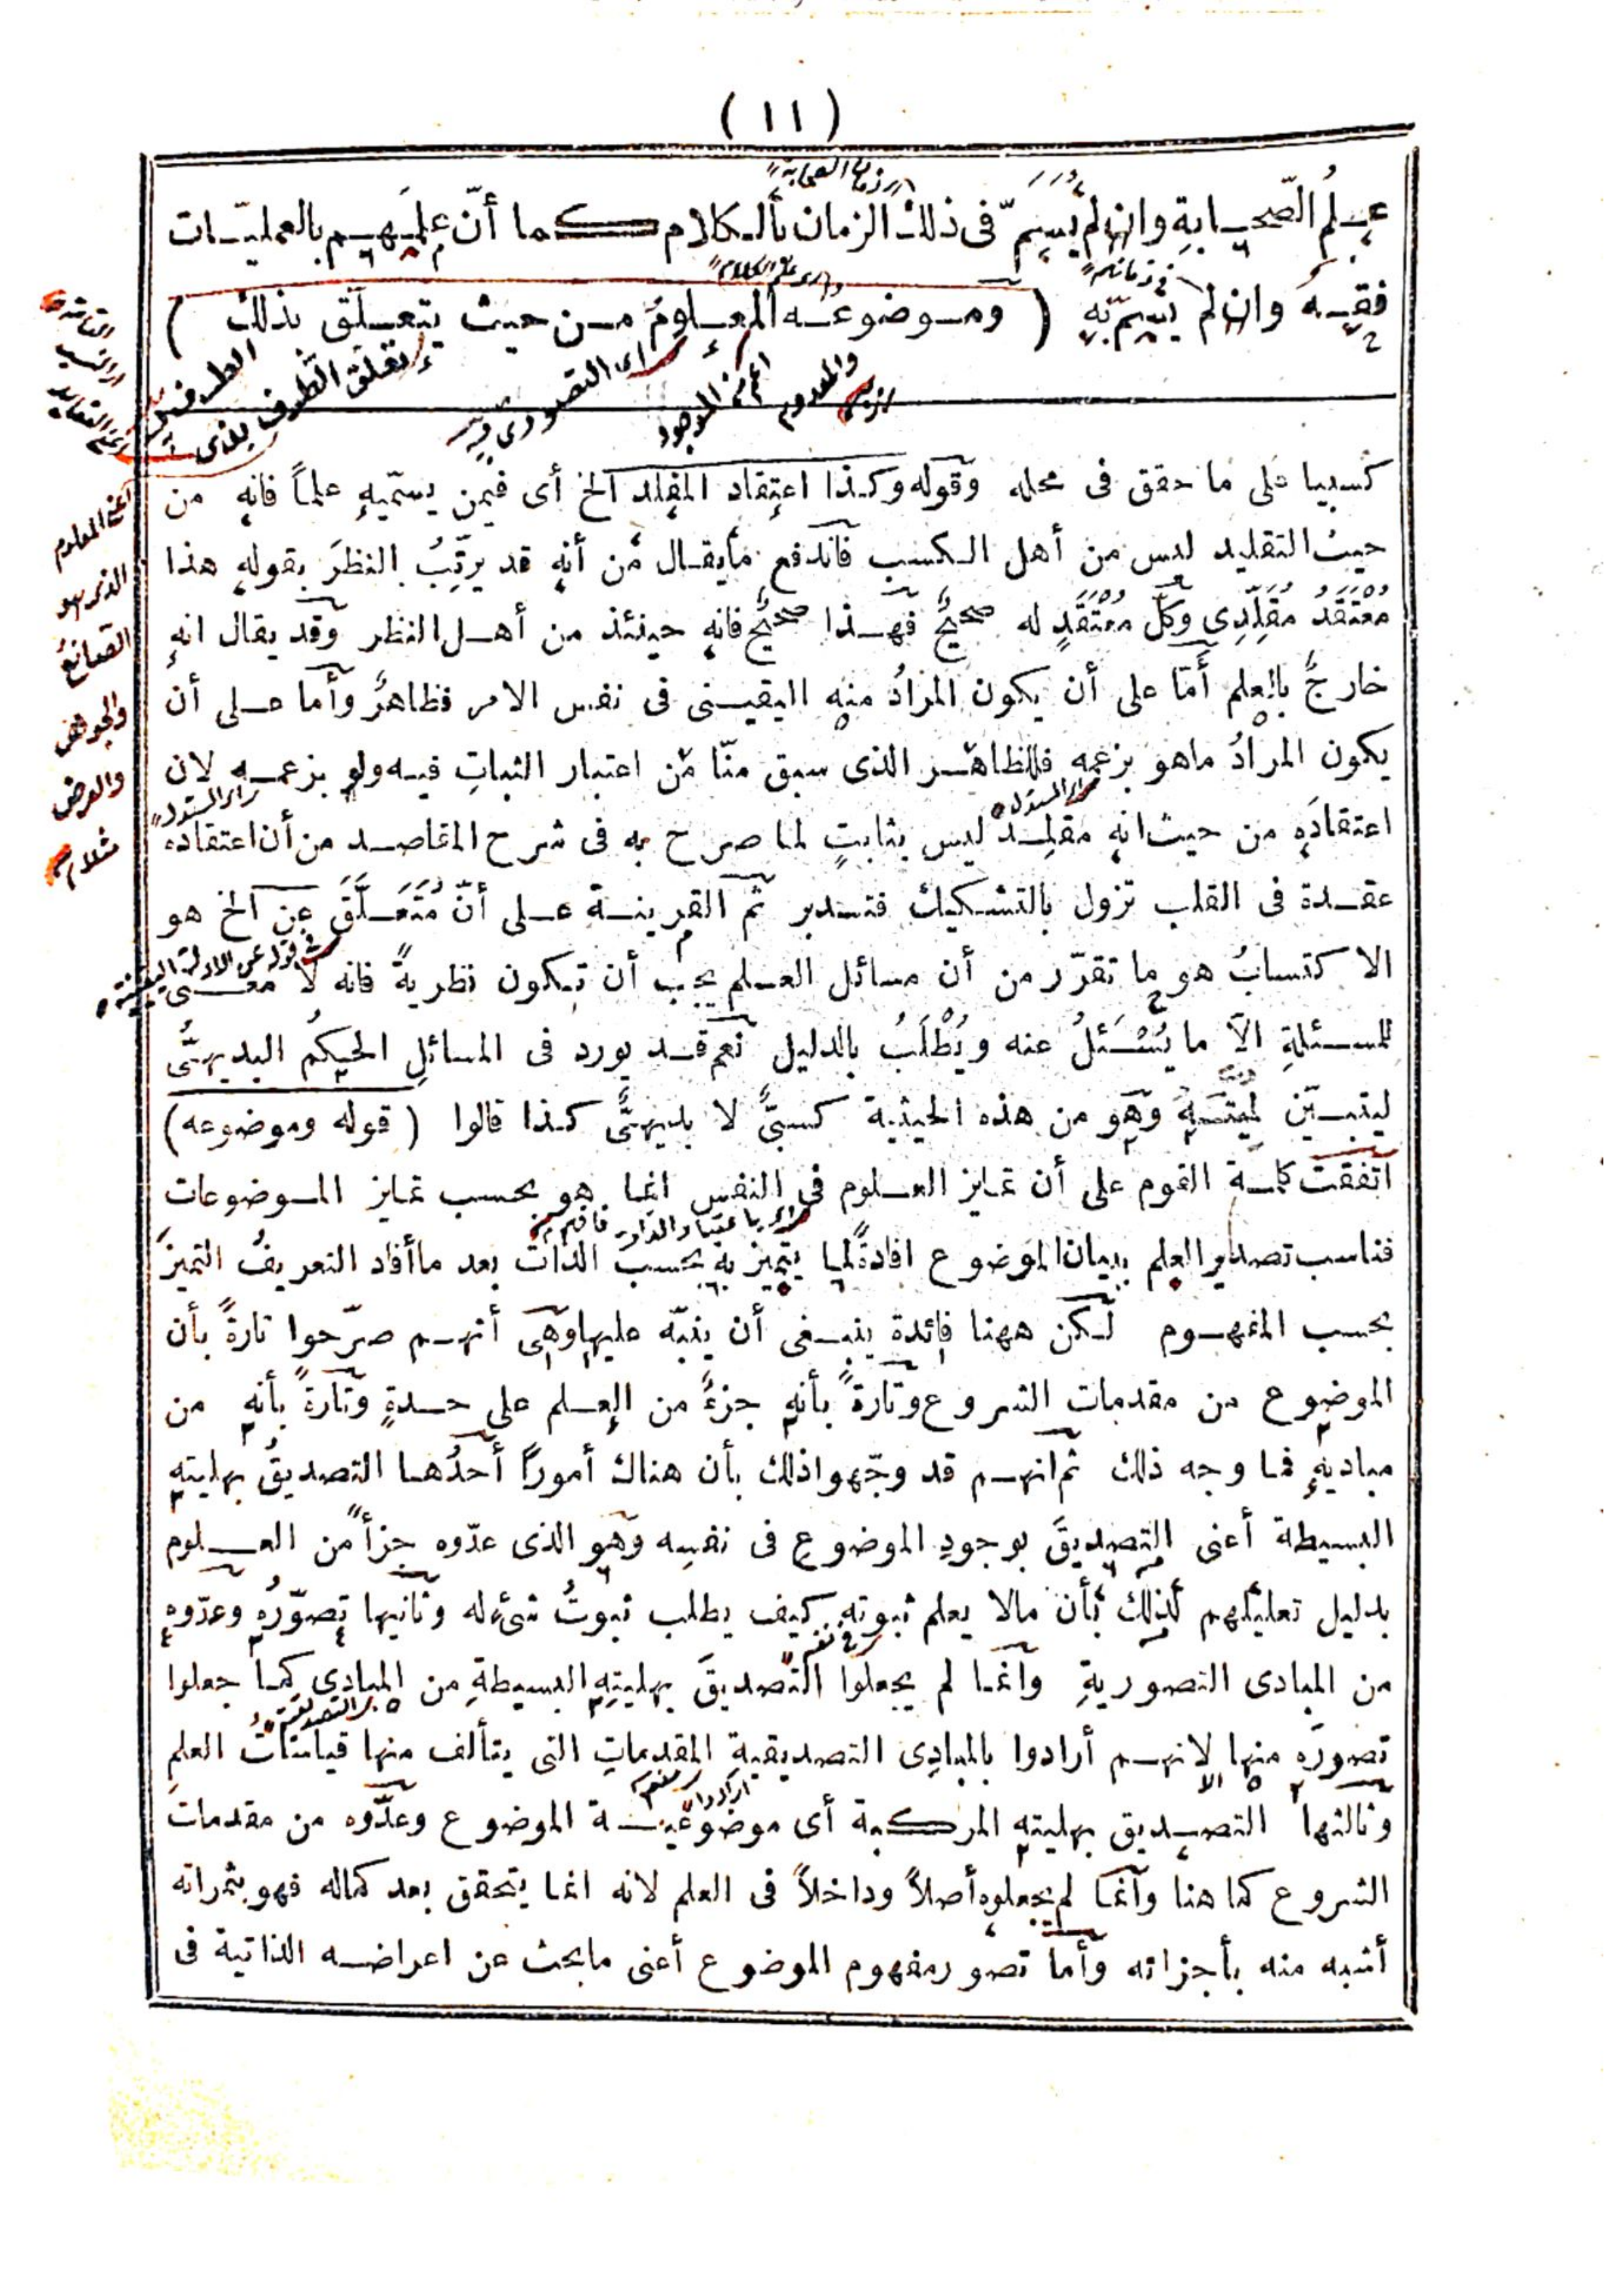 ( ١١ )
علمُ الصّحابةِ وان لم يُسَمَّ فى ذلك الزمان بالكلام كما أنّ علمَهم بالعمليّات
فقه وان لم يسمّ به ( وموضوعُه المعلومُ من حيث يتعلّق بذلك )
كسبيا على ما حقق فى محله وقوله وكذا اعتقاد المقلد الخ أى فيمن يسمّيه علماً فانه من
حيث التقليد ليس من أهل الكسب فاندفع مايقال من أنه قد يرتِّبُ النظرَ بقوله هذا
مُعْتَقَدُ مُقَلَّدِى وكلُّ مُعْتَقَدٍ له صحيحٌ فهذا صحيحٌ فانه حينئذ من أهل النظر وقد يقال انه
خارجٌ بالعلم أمّا على أن يكون المرادُ منه اليقينى فى نفس الامر فظاهرٌ وأما على أن
يكون المرادُ ماهو بزعمه فللظاهر الذى سبق منّا من اعتبار الثباتِ فيه ولو بزعمه لان
اعتقادَه من حيث انه مقلد ليس بثابتٍ لما صرح به فى شرح المقاصد من أن اعتقاده
عقدة فى القلب تزول بالتشكيك فتدبر ثم القرينة على أنّ مُتَعَلَّقَ عن الخ هو
الاكتسابُ هو ما تقرّر من أن مسائل العلم يجب أن تكون نظريةً فانه لا معنى
للمسئلةِ الاّ ما يُسْئَلُ عنه ويُطْلَبُ بالدليل نعم قد يورد فى المسائلِ الحكمُ البديهىُّ
ليتبيّن لميته وهو من هذه الحيثية كسبىٌّ لا بديهىٌّ كذا قالوا ( قوله وموضوعه )
اتفقت كلمة القوم على أن تمايز العلوم فى النفس انما هو بحسب تمايز الموضوعات
فناسب تصدير العلم ببيان الموضوع افادةً لما يتميز به بحسب الذات بعد ماأفاد التعريفُ التميزَ
بحسب المفهوم لكن ههنا فائدة ينبغى أن ينبّه عليها وهى أنهم صرّحوا تارةً بأن
الموضوع من مقدمات الشروع وتارةً بأنه جزءٌ من العلم على حدةٍ وتارةً بأنه من
مباديه فما وجه ذلك ثم انهم قد وجّهوا ذلك بأن هناك أموراً أحدُها التصديقُ بهليته
البسيطة أعنى التصديقَ بوجودِ الموضوعِ فى نفسِه وهو الذى عدّوه جزأً من العلوم
بدليل تعليلهم لذلك بأن مالا يعلم ثبوته كيف يطلب ثبوتُ شىءله وثانيها تصوّرُه وعدّوه
من المبادى التصوريةِ وانما لم يجعلوا التصديقَ بهليتِه البسيطةِ من المبادى كما جعلوا
تصورَه منها لانهم أرادوا بالمبادِى التصديقيةِ المقدماتِ التى يتألف منها قياساتُ العلمِ
وثالثها التصديق بهليته المركبة أى موضوعية الموضوع وعدّوه من مقدمات
الشروع كما هنا وانما لم يجعلوه أصلاً وداخلاً فى العلم لانه انما يتحقق بعد كماله فهو بثمراته
أشبه منه بأجزائه وأما تصورمفهوم الموضوع أعنى مايبحث عن اعراضه الذاتية فى
أى التصورى
أعم من الموجود
والمعدوم
تعلق الطرف بذى
الطرف
أعنى المعلوم
الذى هو
الصانعُ
والجوهر
والعرض
مثلا